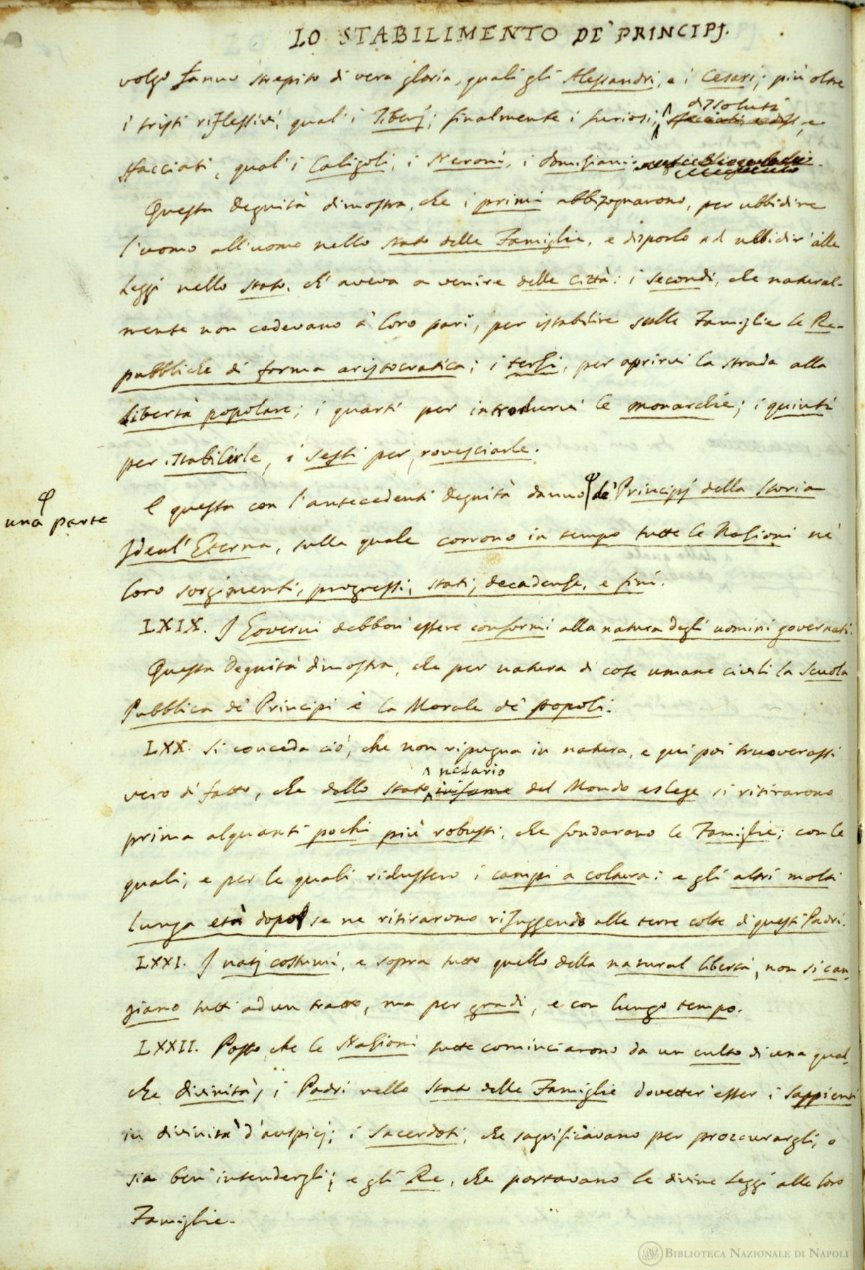 LO STABILIMENTO DE' PRINCIPJ.
volgo fanno strepito di vera gloria, quali gli Alessandri, e i Cesari; più oltre
i tristi riflessivi, qual'i Tiberj; finalmente i furiosi, dissoluti, e
sfacciati, qual'i Caligoli, i Neroni, i Domiziani.
Questa Degnità dimostra, che i primi abbizognarono, per ubbidire
l'uomo all'uomo nello stato delle Famiglie, e disporlo ad ubbidir'alle
Leggi nello stato, ch'aveva a venire delle città: i secondi, che natural-
mente non cedevano a' loro pari, per istabilire sulle Famiglie le Re-
pubbliche di forma aristocratica; i terzi, per aprirvi la strada alla
Libertà popolare; i quarti per introdurvi le monarchie; i quinti
per istabilirle, i sesti per rovesciarle.
E questa con l'antecedenti Degnità danno φ de' Principj della Storia
φ
una parte
Ideal' Eterna, sulla quale corrono in tempo tutte le Nazioni ne'
loro sorgimenti, progressi, stati, decadenze, e fini.
LXIX. I Governi debbon' essere conformi alla natura degli uomini governati.
Questa Degnità dimostra, che per natura di cose umane civili la Scuola
Pubblica de' Principi è la Morale de' popoli.
LXX. Si conceda ciò, che non ripugna in natura, e qui poi truoverassi
vero di fatto, che dallo stato nefario infame del Mondo eslege si ritirarono
prima alquanti pochi più robusti, che fondarono le Famiglie; con le
quali, e per le quali ridussero i campi a coltura: e gli altri molti
lunga età dopo se ne ritirarono rifuggendo alle terre colte di questi Padri.
LXXI. I natj costumi, e sopra tutto quello della natural libertà, non si can-
giano tutti ad un tratto, ma per gradi, e con lungo tempo.
LXXII. Posto che le Nazioni tutte cominciarono da un culto di una qual-
che divinità, i Padri nello stato delle Famiglie dovetter'esser i sappienti
in divinità d'auspicj; i Sacerdoti, che sagrificavano per proccurargli, o
sia ben'intendergli; e gli Re, che portavano le divine Leggi alle loro
Famiglie.
BIBLIOTECA NAZIONALE DI NAPOLI